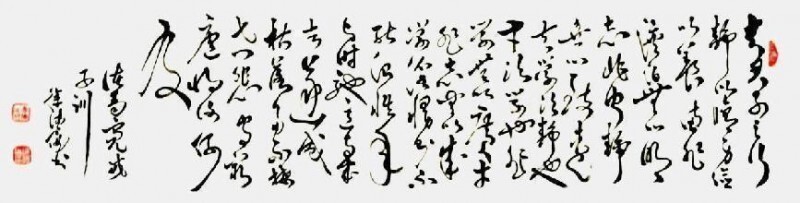 夫君子之行
静以修身俭
以养德非
淡泊无以明
志非宁静
无以致远
夫学须静也
才须学也非
学无以广才
非志无以成
学则不
能治性年
与时驰意
去遂成
枯落多不接
世悲守穷
庐将复何
及
诸葛亮诫
子训
书